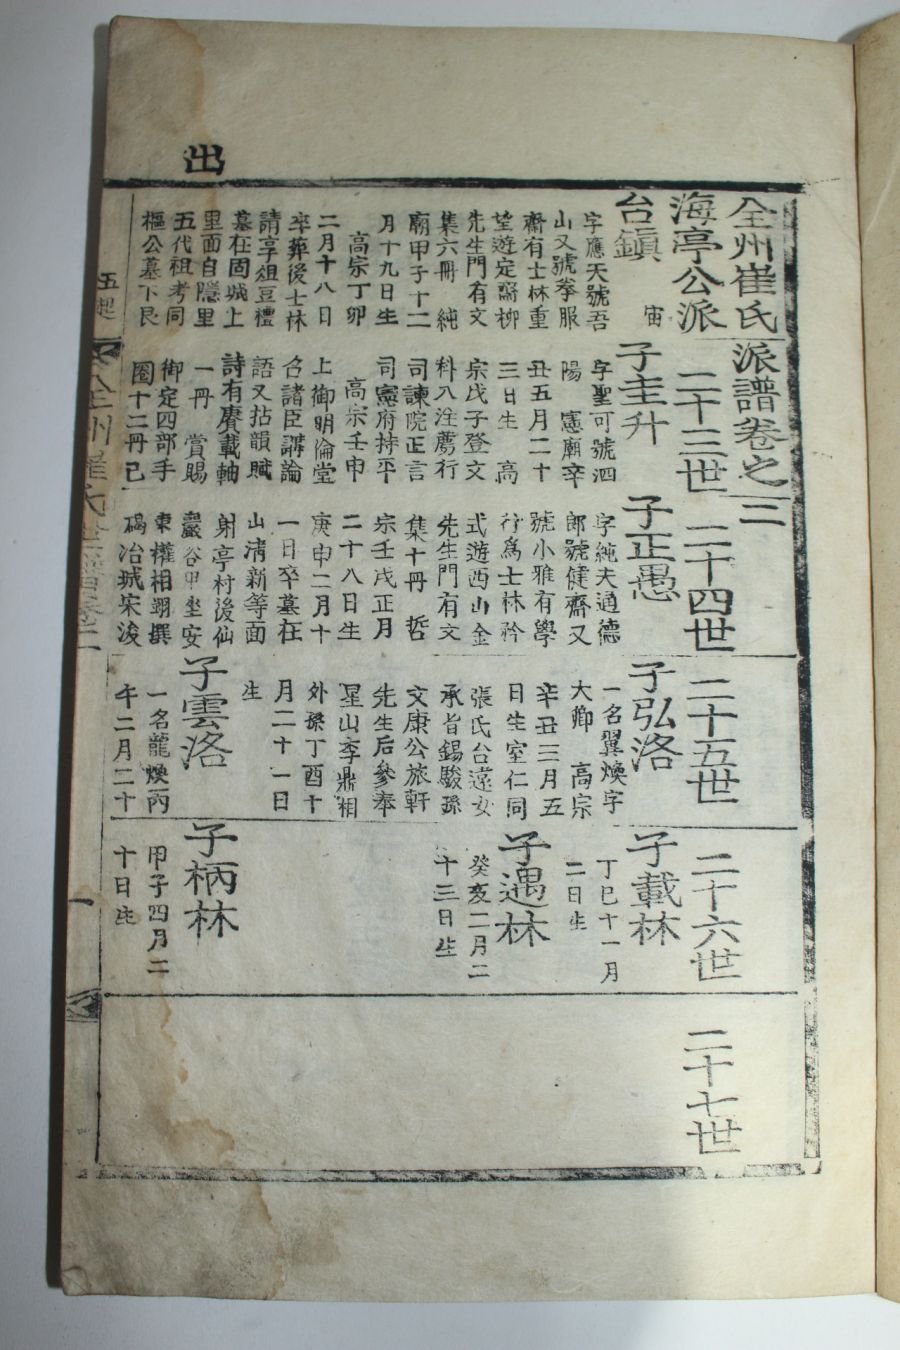 出
全州崔氏派譜卷之三
海亭公派
二十三世
二十四世
二十五世
二十六世
二十七世
台鎭
宙
字應天號吾
山又號拳服
齋有士林重
望遊定齋柳
先生門有文
集六冊 純
廟甲子十二
月十九日生
高宗丁卯
二月十八日
卒葬後士林
請享俎豆禮
墓在固城上
里面自隱里
五代祖考同
樞公墓下艮
子圭升
字聖可號泗
陽 憲廟辛
丑五月二十
三日生 高
宗戊子登文
科入注薦行
司諫院正言
司憲府持平
高宗壬申
上御明倫堂
召諸臣講論
語又拈韻賦
詩有賡載軸
一冊 賞賜
御定四部手
圈十二冊已
子正愚
字純夫通德
郎號健齋又
號小雅有學
行爲士林矜
式遊西山金
先生門有文
集十冊 哲
宗壬戌正月
二十八日生
庚申二月十
一日卒墓在
山清新等面
射亭村後仙
巖谷甲坐安
東權相翊撰
碣冶城宋浚
子弘洛
一名翼煥字
大卿 高宗
辛丑三月五
日生室仁同
張氏台遠女
承旨錫駿孫
文康公旅軒
先生后參奉
星山李鼎相
外孫丁酉十
月二十一日
生
子雲洛
一名龍煥丙
午二月二十
子載林
丁巳十一月
二日生
子遇林
癸亥二月二
十三日生
子柄林
甲子四月二
十日生
全州崔氏世譜卷之
一